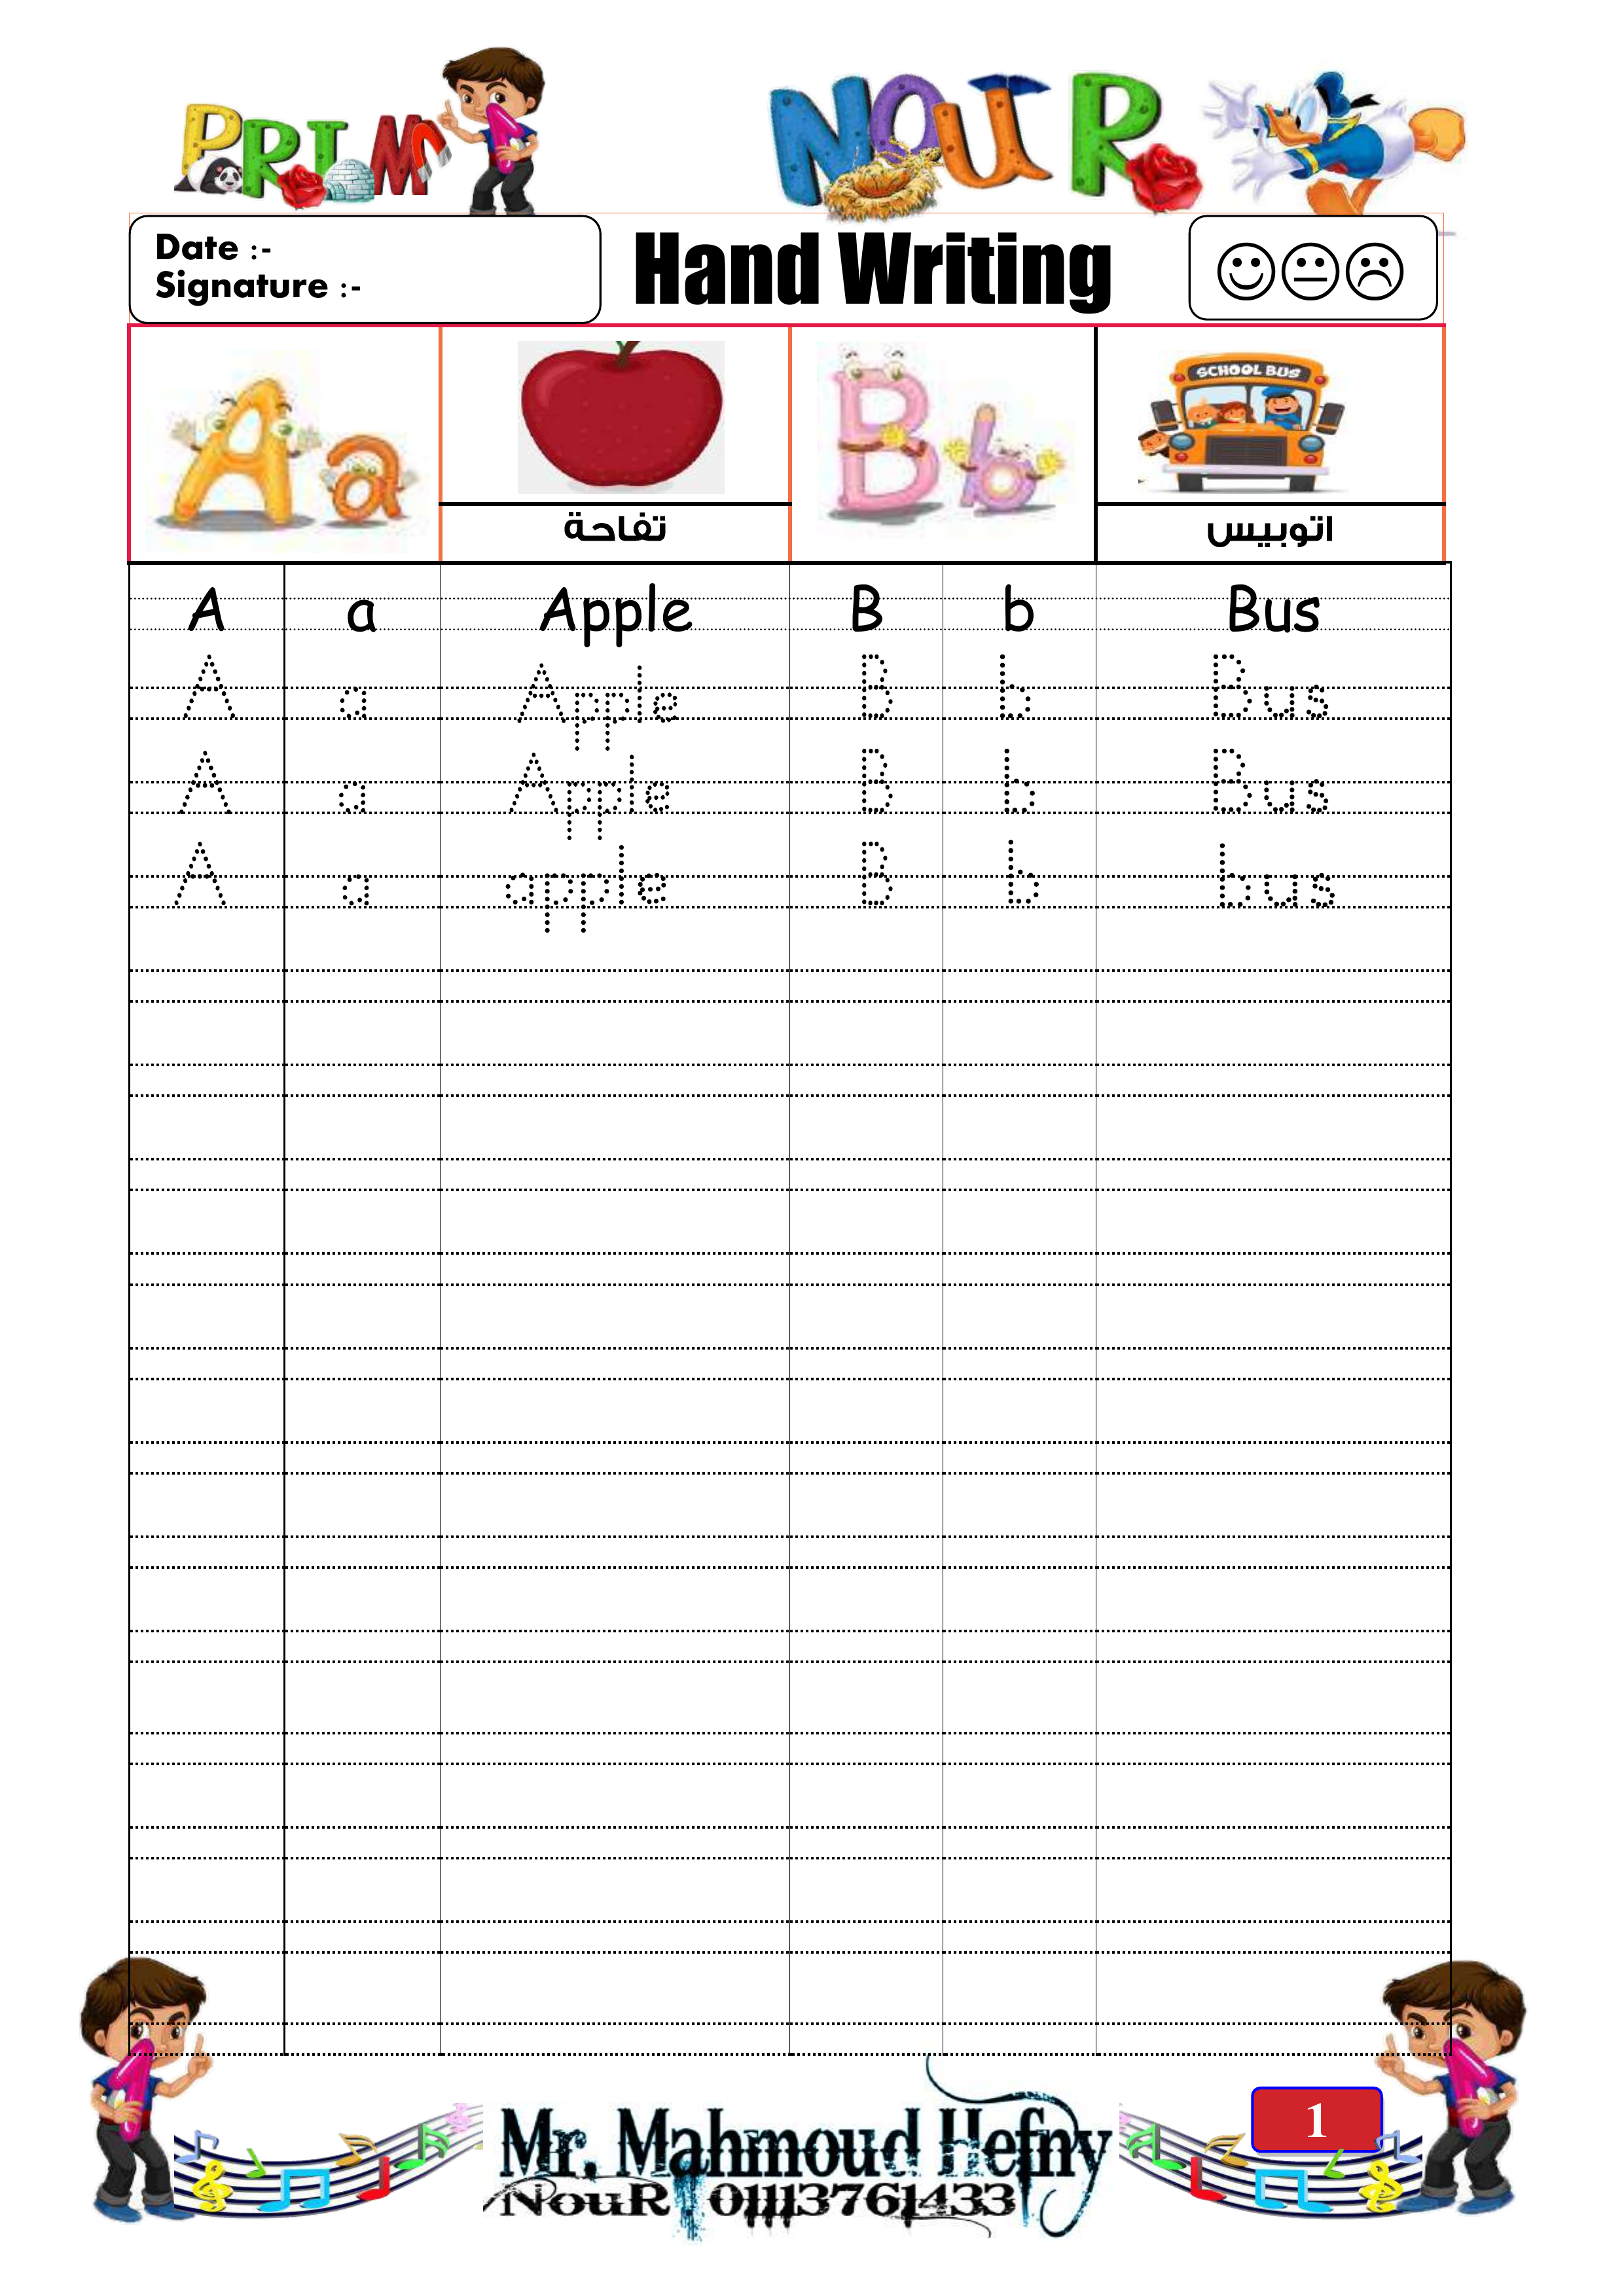 PRIM 1 NOUR
Date :-
Signature :-
Hand Writing
A a B b SCHOOL BUS
تفاحة اتوبيس
A a Apple B b Bus
A a Apple B b Bus
A a Apple B b Bus
A a apple B b bus
1
Mr. Mahmoud Hefny
NouR 01113761433